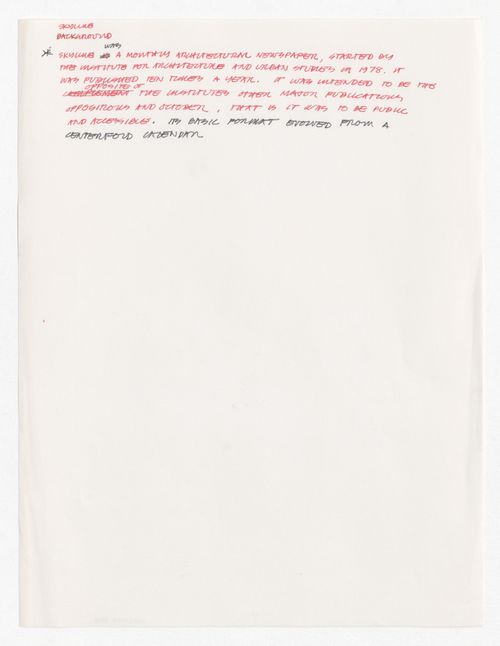 SKYLINE
BACKGROUND
WAS
* SKYLINE IS A MONTHLY ARCHITECTURAL NEWSPAPER, STARTED BY
THE INSTITUTE FOR ARCHITECTURE AND URBAN STUDIES IN 1978. IT
WAS PUBLISHED TEN TIMES A YEAR. IT WAS INTENDED TO BE THE
OPPOSITE OF
COMPLEMENT THE INSTITUTES OTHER MAJOR PUBLICATIONS,
OPPOSITIONS AND OCTOBER, THAT IS IT WAS TO BE PUBLIC
AND ACCESSIBLE. ITS BASIC FORMAT EVOLVED FROM A
CENTERFOLD CALENDAR